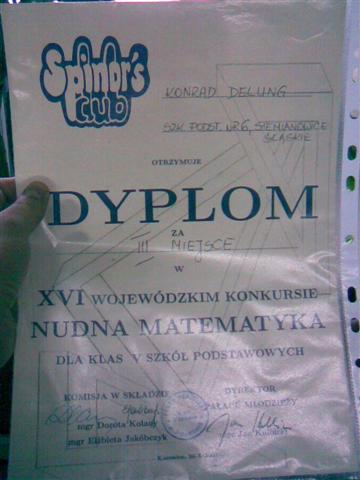 Spinor's
Club
KONRAD DELUNG
SZK. PODST. NR 6, SIEMIANOWICE
ŚLĄSKIE
OTRZYMUJE
DYPLOM
ZA
III MIEJSCE
W
XVI WOJEWÓDZKIM KONKURSIE
NUDNA MATEMATYKA
DLA KLAS V SZKÓŁ PODSTAWOWYCH
KOMISJA W SKŁADZIE
DYREKTOR
PAŁACU MŁODZIEŻY
mgr Dorota Kolany
mgr Elżbieta Jakóbczyk
mgr Jan
Katowice,